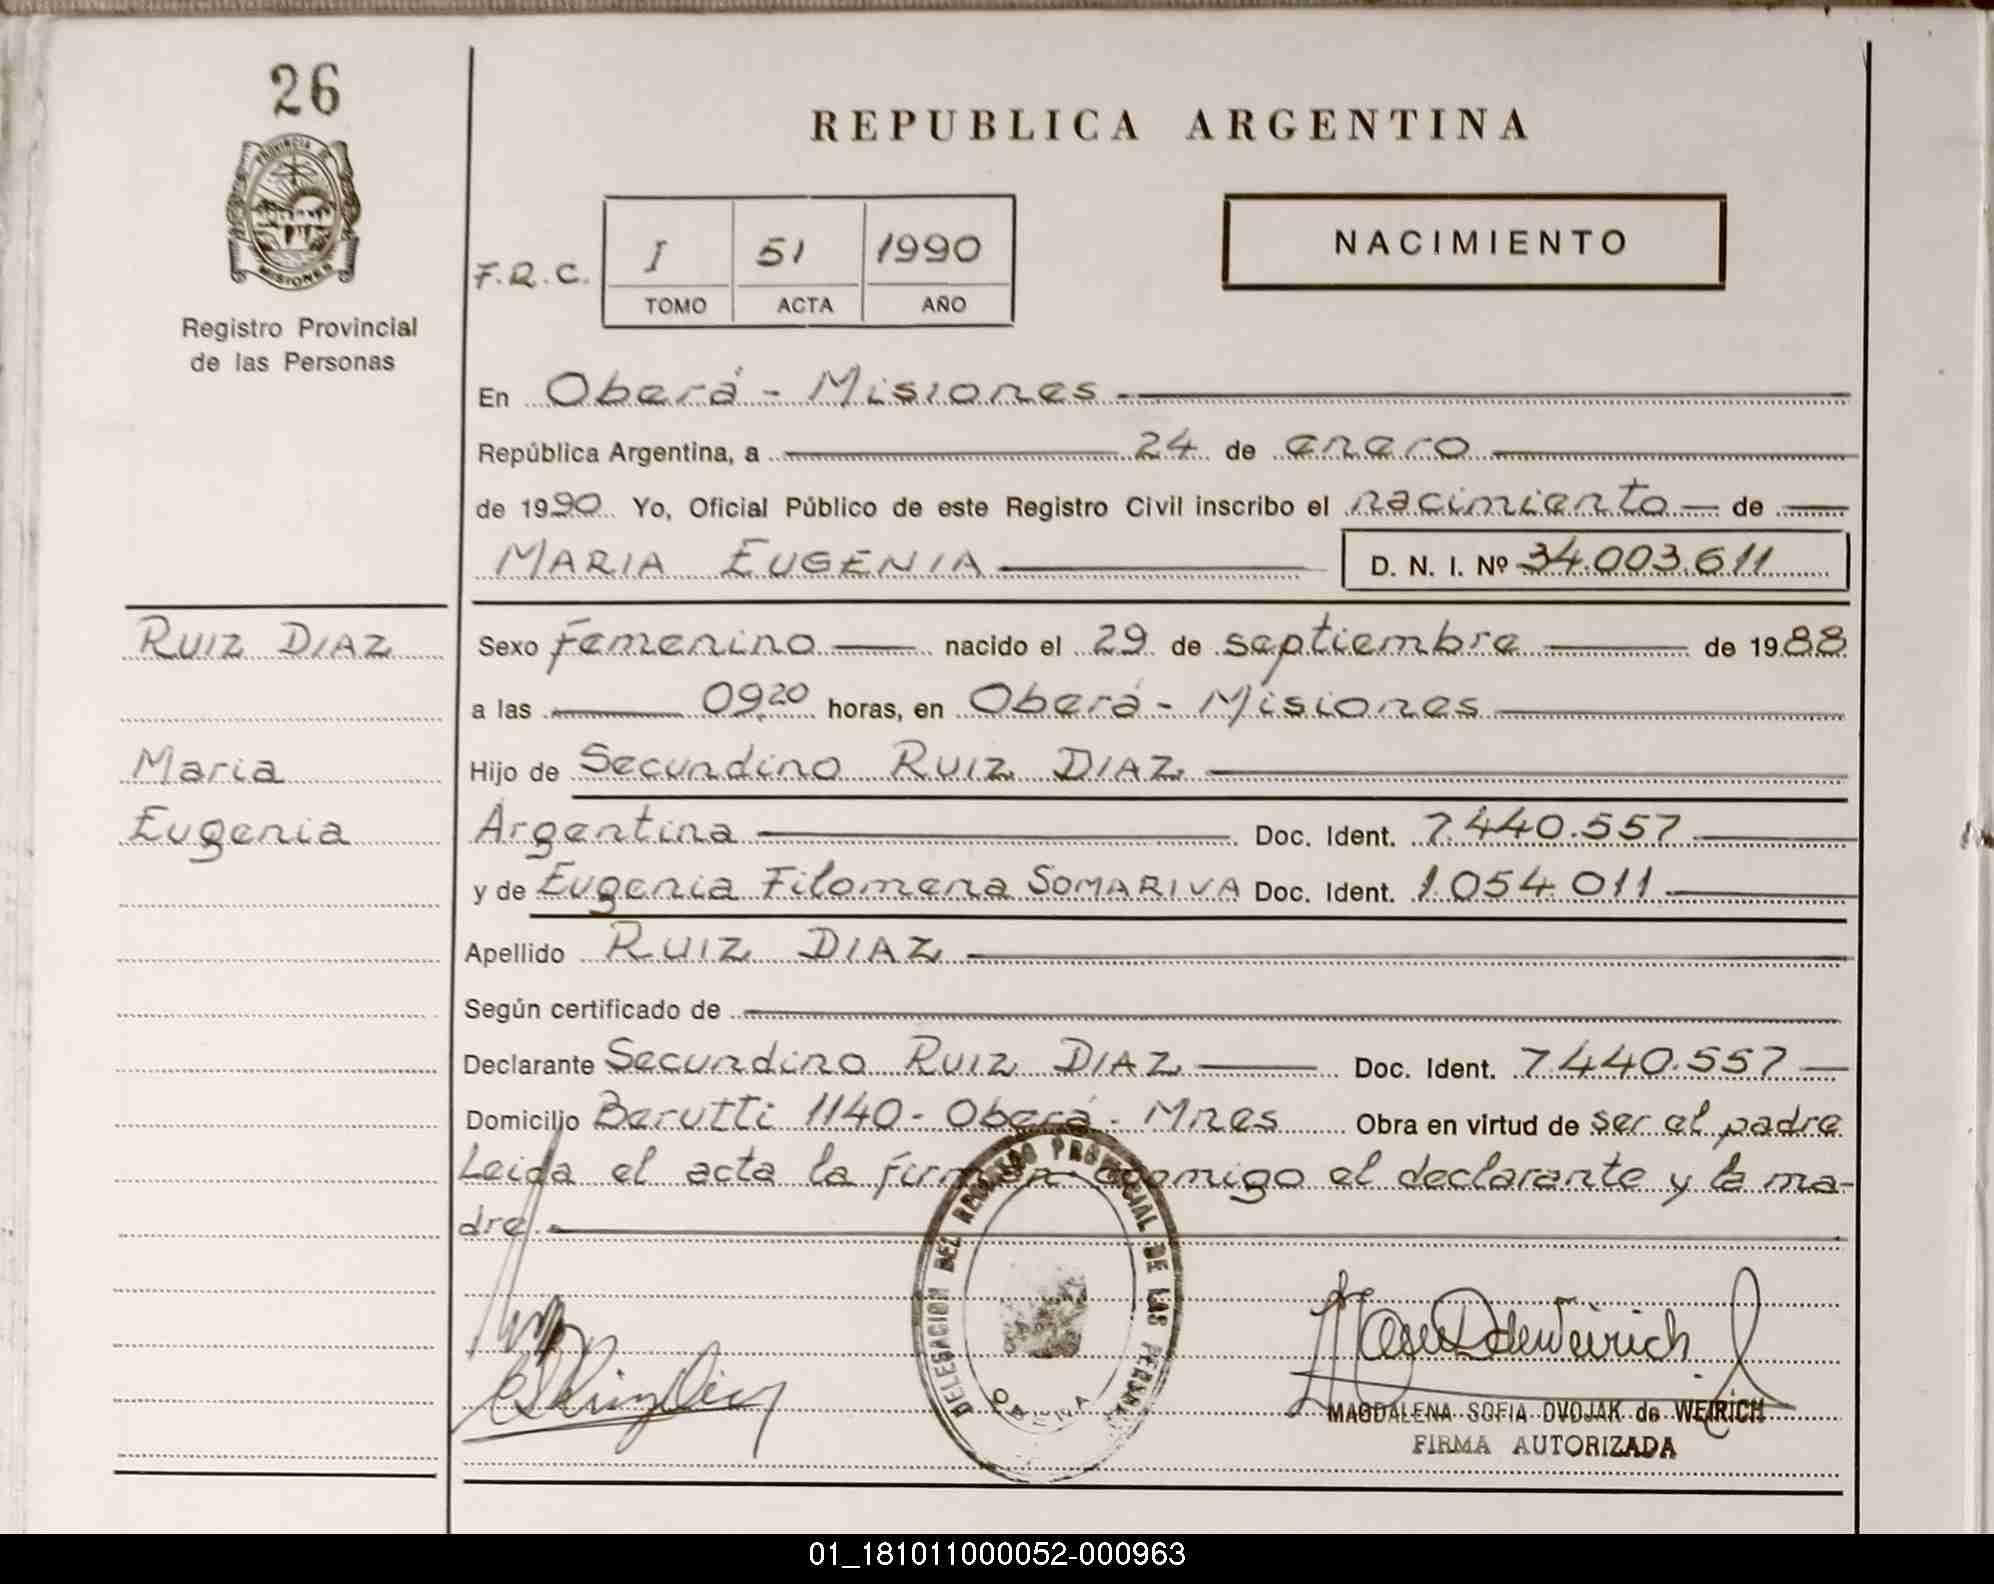 26
PROVINCIA DE
MISIONES
Registro Provincial
de las Personas
REPUBLICA ARGENTINA
F.R.C.
I 51 1990
TOMO ACTA AÑO
NACIMIENTO
En Oberá - Misiones
República Argentina, a 24 de enero
de 1990 Yo, Oficial Público de este Registro Civil inscribo el nacimiento de
MARIA EUGENIA D. N. I. Nº 34.003.611
RUIZ DIAZ
Maria
Eugenia
Sexo Femenino nacido el 29 de septiembre de 1988
a las 09,20 horas, en Oberá - Misiones
Hijo de Secundino RUIZ DIAZ
Argentina Doc. Ident. 7.440.557
y de Eugenia Filomena SOMARIVA Doc. Ident. 1.054.011
Apellido RUIZ DIAZ
Según certificado de
Declarante Secundino RUIZ DIAZ Doc. Ident. 7.440.557
Domicilio Berutti 1140 - Oberá - Mnes Obra en virtud de ser el padre
Leida el acta la firman conmigo el declarante y la ma-
dre.
DELEGACION DEL REGISTRO PROVINCIAL DE LAS PERSONAS
MAGDALENA SOFIA DVOJAK de WEIRICH
FIRMA AUTORIZADA
01_181011000052-000963